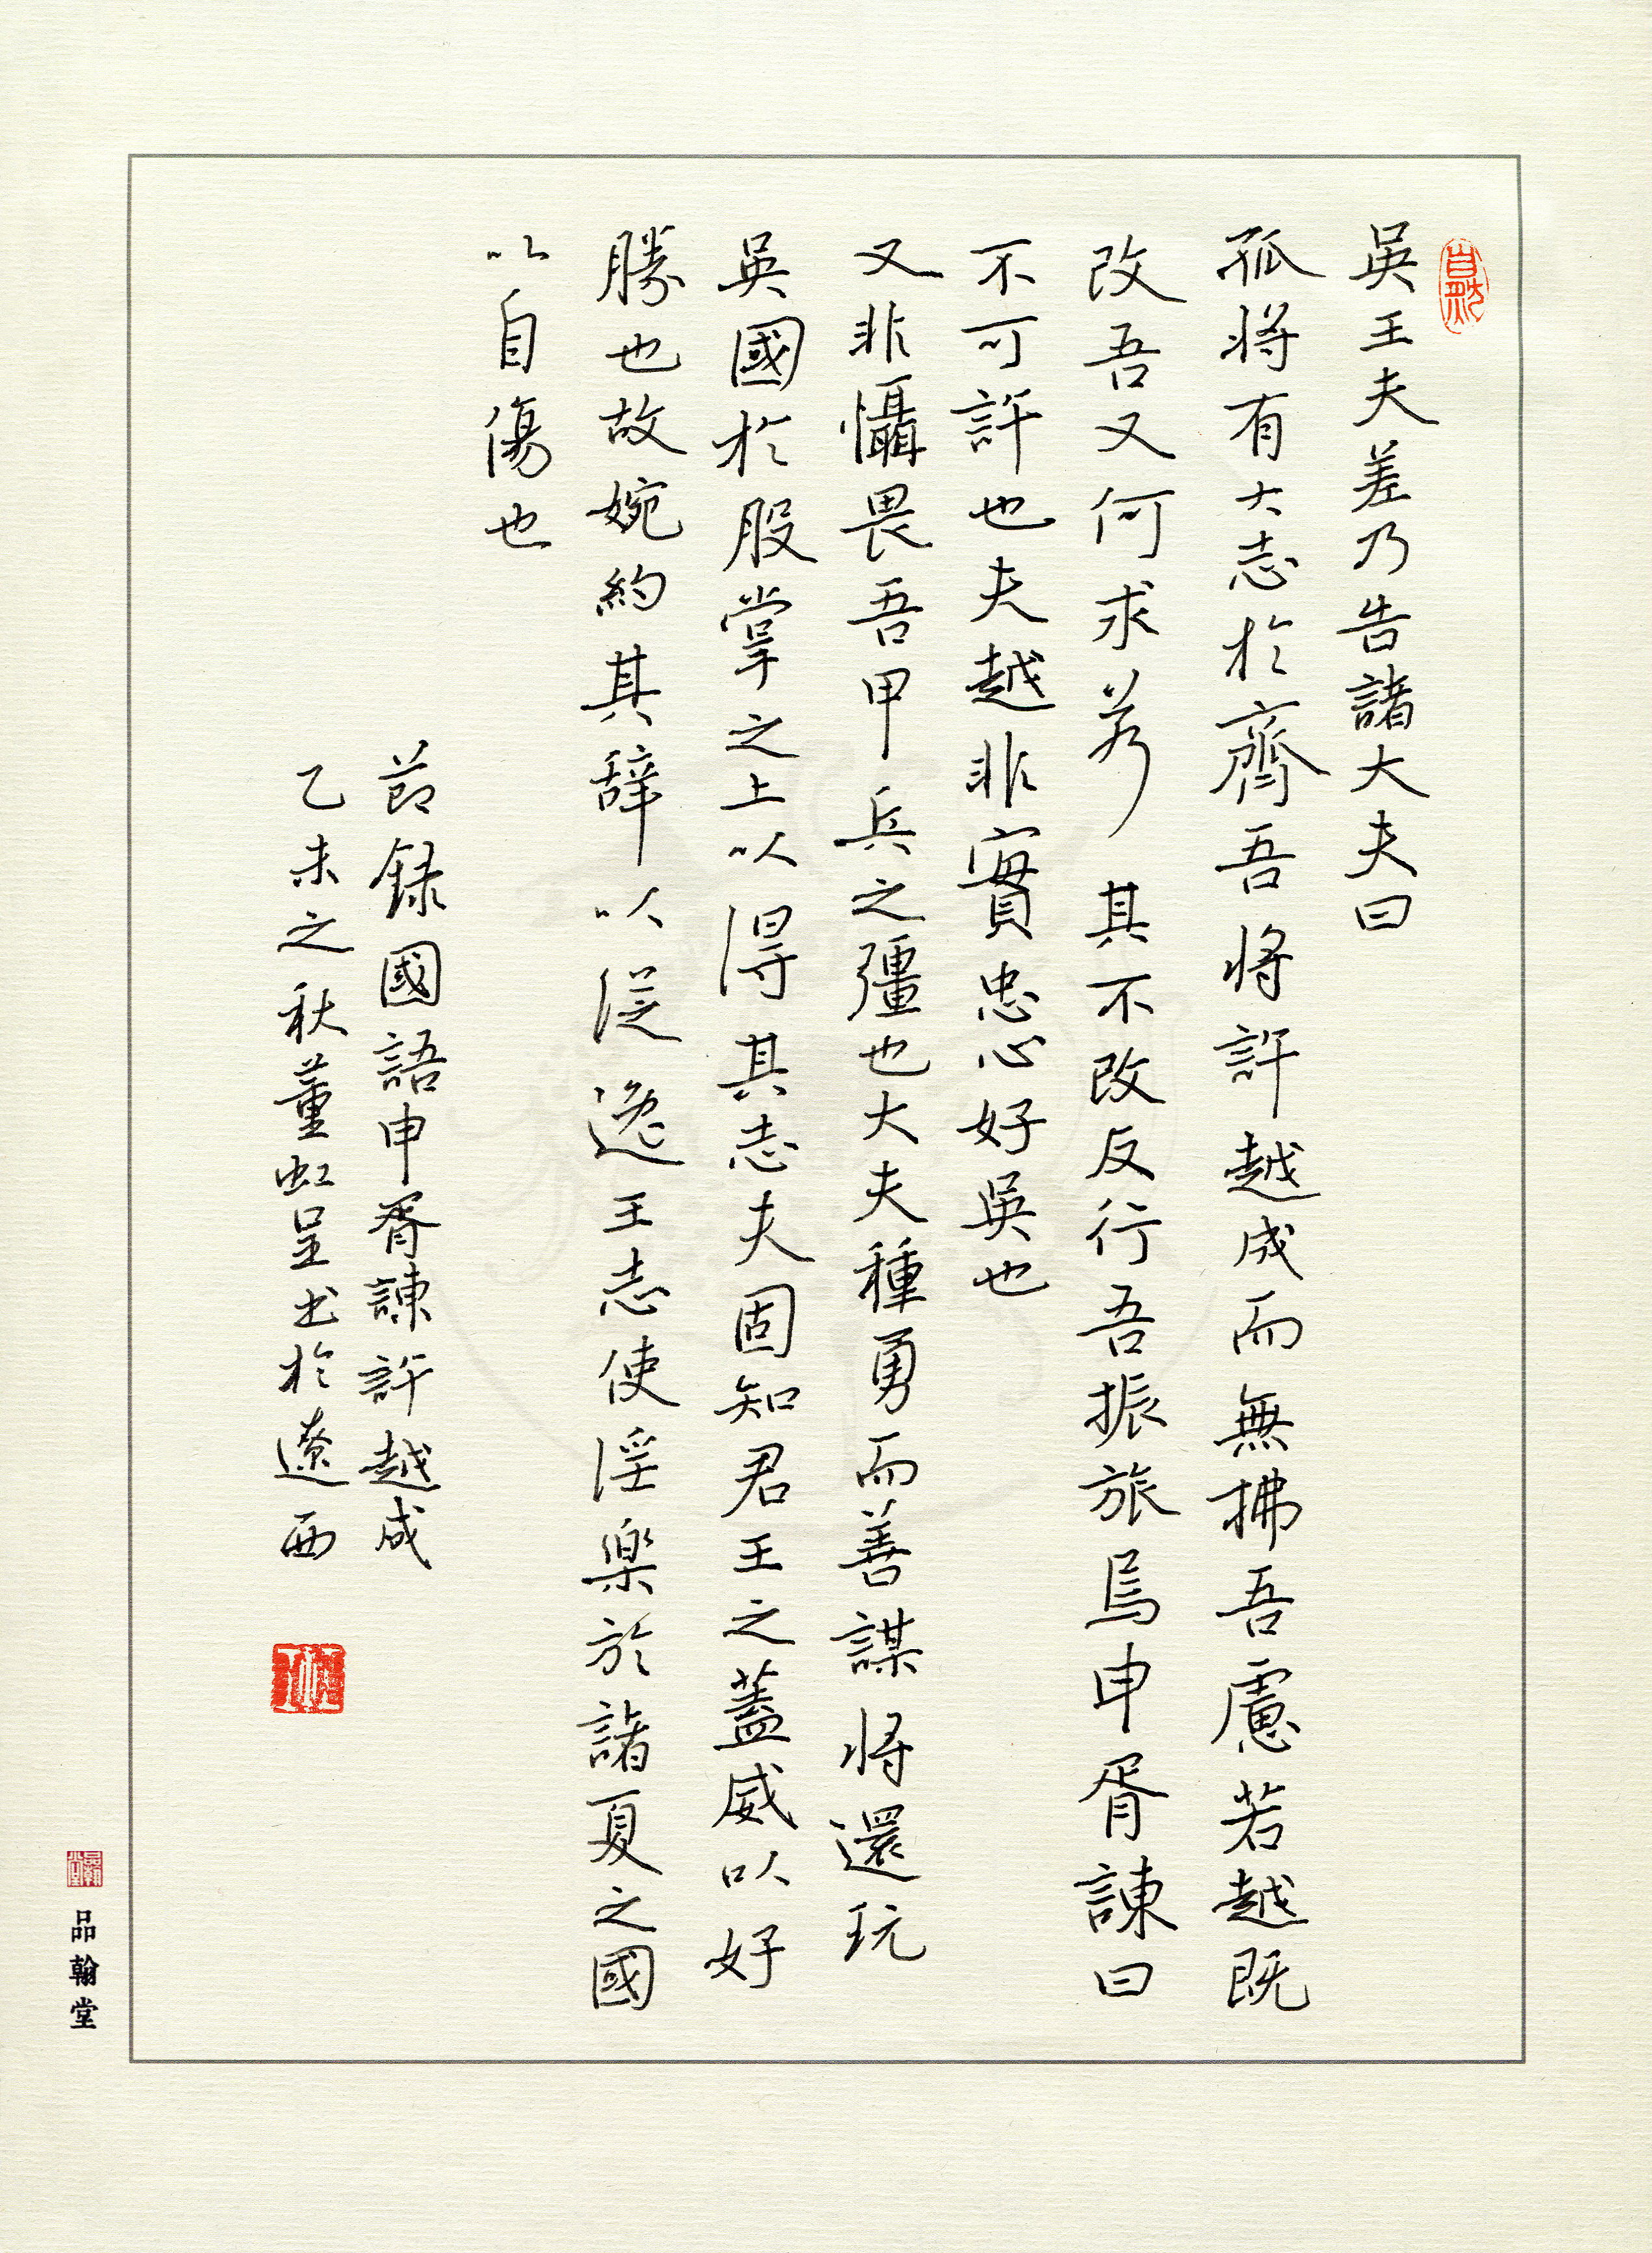 吳王夫差乃告諸大夫曰
孤將有大志於齊吾將許越成而無拂吾慮若越既
改吾又何求若其不改反行吾振旅焉申胥諫曰
不可許也夫越非實忠心好吳也
又非懾畏吾甲兵之彊也大夫種勇而善謀將還玩
吳國於股掌之上以得其志夫固知君王之蓋威以好
勝也故婉約其辞以從逸王志使淫樂於諸夏之國
以自傷也
節録國語申胥諫許越成
乙未之秋董虹呈书於遼西
品翰堂